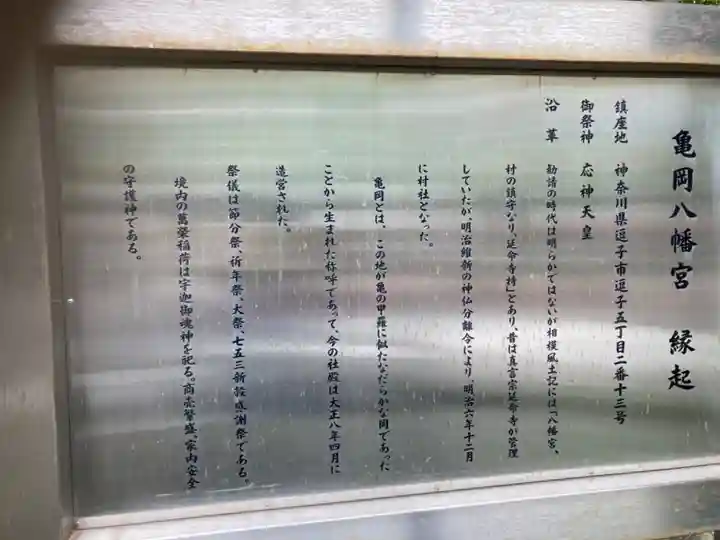 亀岡八幡宮 縁起
鎮座地 神奈川県逗子市逗子五丁目二番十三号
御祭神 応神天皇
沿革 勧請の時代は明らかではないが相模風土記には「八幡宮、
村の鎮守なり、延命寺持」とあり、昔は真言宗延命寺が管理
していたが、明治維新の神仏分離令により、明治六年十二月
に村社となった。
亀岡とは、この地が亀の甲羅に似たなだらかな岡であった
ことから生まれた称呼であって、今の社殿は大正八年四月に
造営された。
祭儀は節分祭、祈年祭、大祭、七五三新穀感謝祭である。
境内の萬栄稲荷は宇迦御魂神を祀る。商売繁盛、家内安全
の守護神である。